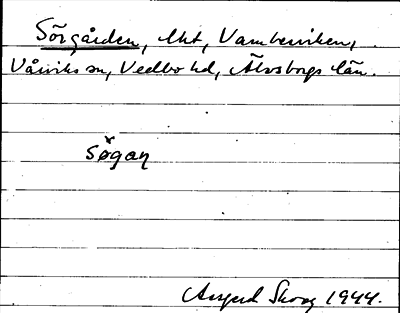 Sörgården, lht, Vamberviken,
Vårviks sn, Vedbo hd, Älvsborgs län.
søgaɲ
Asgerd Skoog 1944.